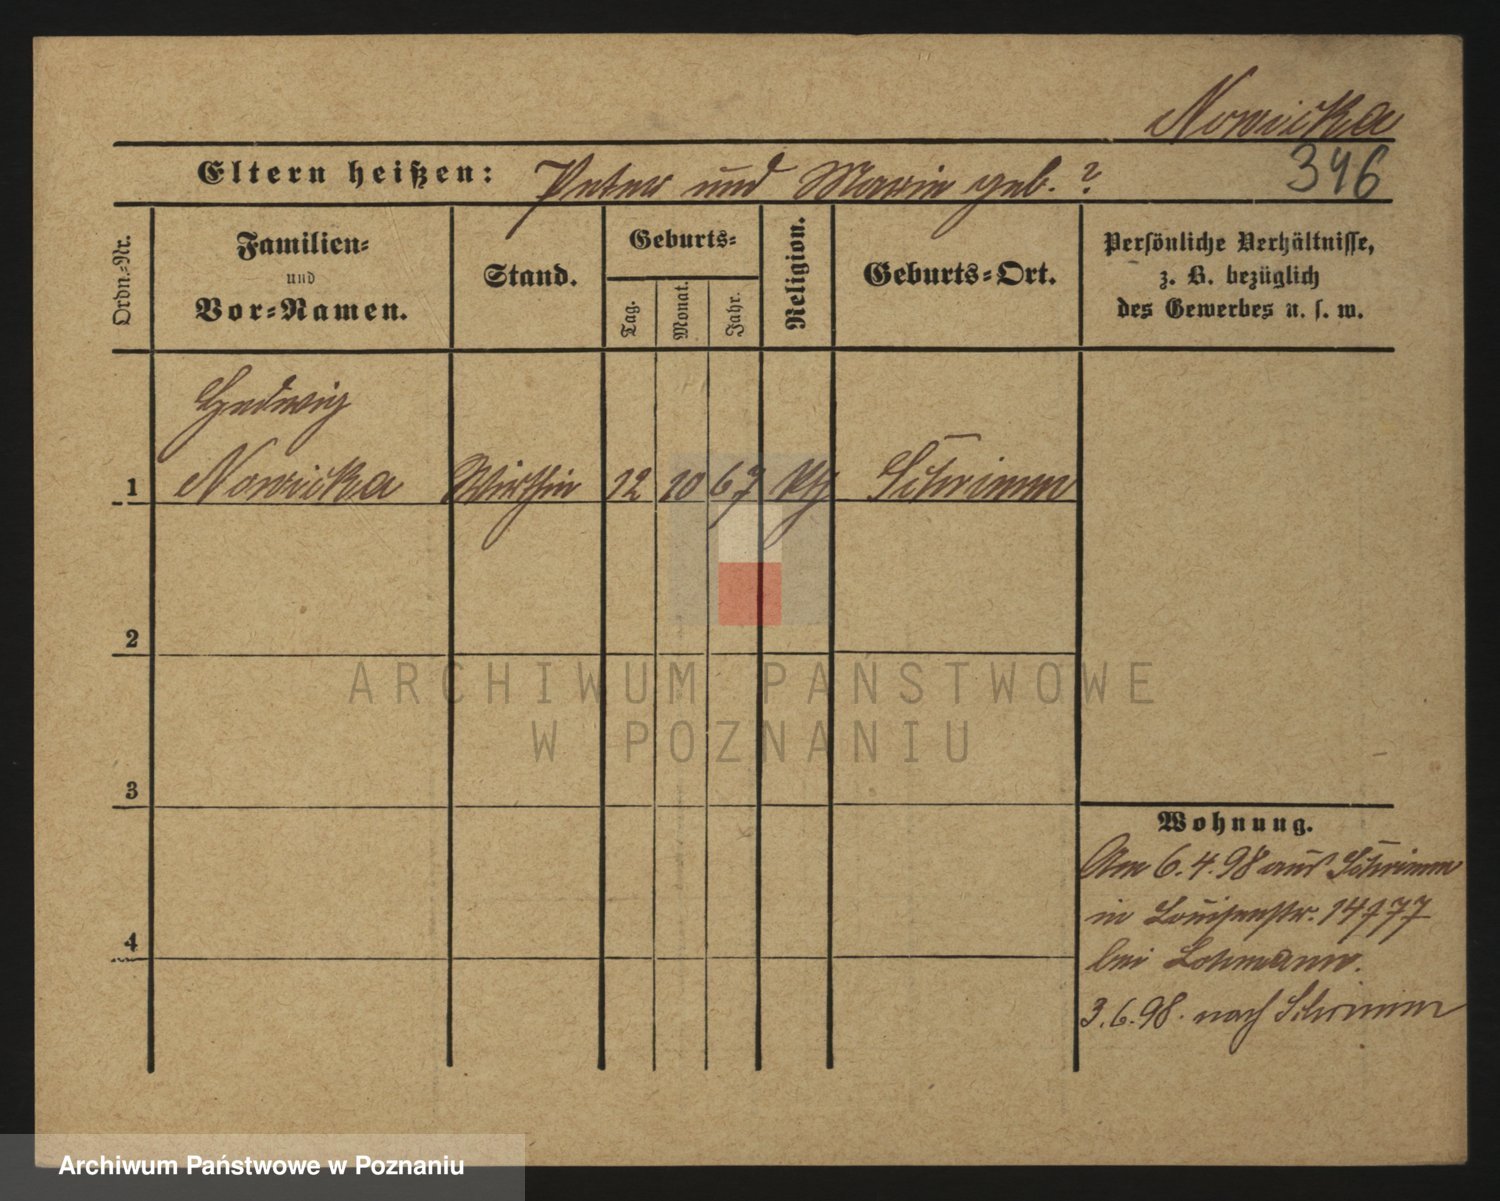 Nowicka
Eltern heißen: Peter und Marie geb. ?
346
Ordn.-Nr.
Familien-
und
Vor-Namen.
Stand.
Geburts-
Tag.
Monat.
Jahr.
Religion.
Geburts-Ort.
Persönliche Verhältnisse,
z. B. bezüglich
des Gewerbes u. s. w.
Hedwig
1 Nowicka Wirthin 12 10 67 kth Schrimm
2
3
4
Wohnung.
Am 6.4.98 aus Schrimm
in Louisenstr.
bei Lohmann.
3.6.98. nach Schrimm
ARCHIWUM PAŃSTWOWE
W POZNANIU
Archiwum Państwowe w Poznaniu